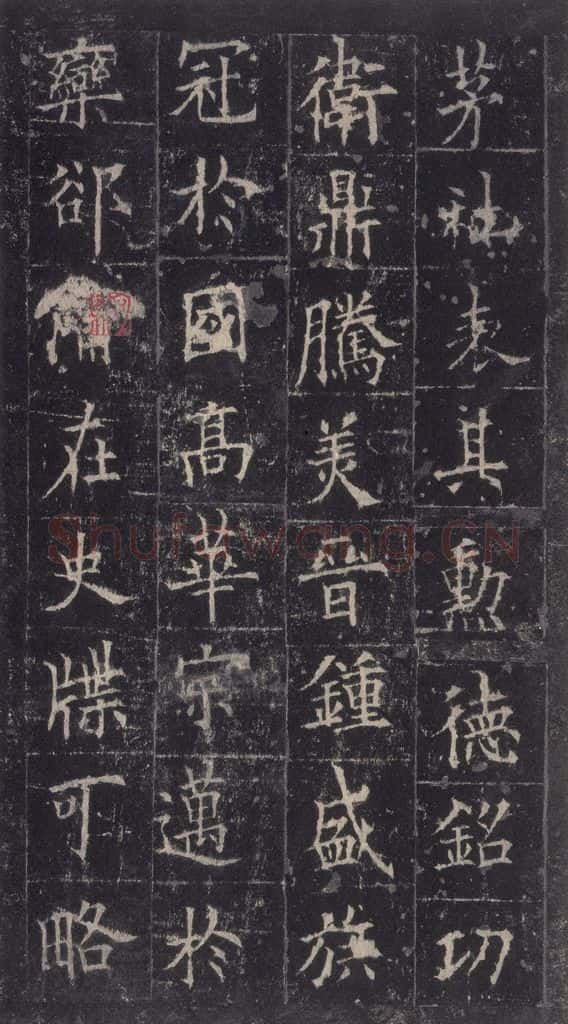 茅社表其勲德銘功
衛鼎騰美晉鍾盛族
冠於國高華宗邁於
欒郤備在史牒可略
Shufawang.CN